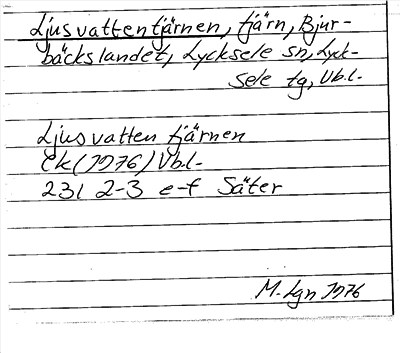 Ljusvattentjärnen, tjärn, Bjur-
bäckslandet, Lycksele sn, Lyck-
sele tg, Vb.l.
Ljusvatten tjärnen
Ek (1976) Vb.l.
23I 2-3 e-f Säter
M. Lgn 1976